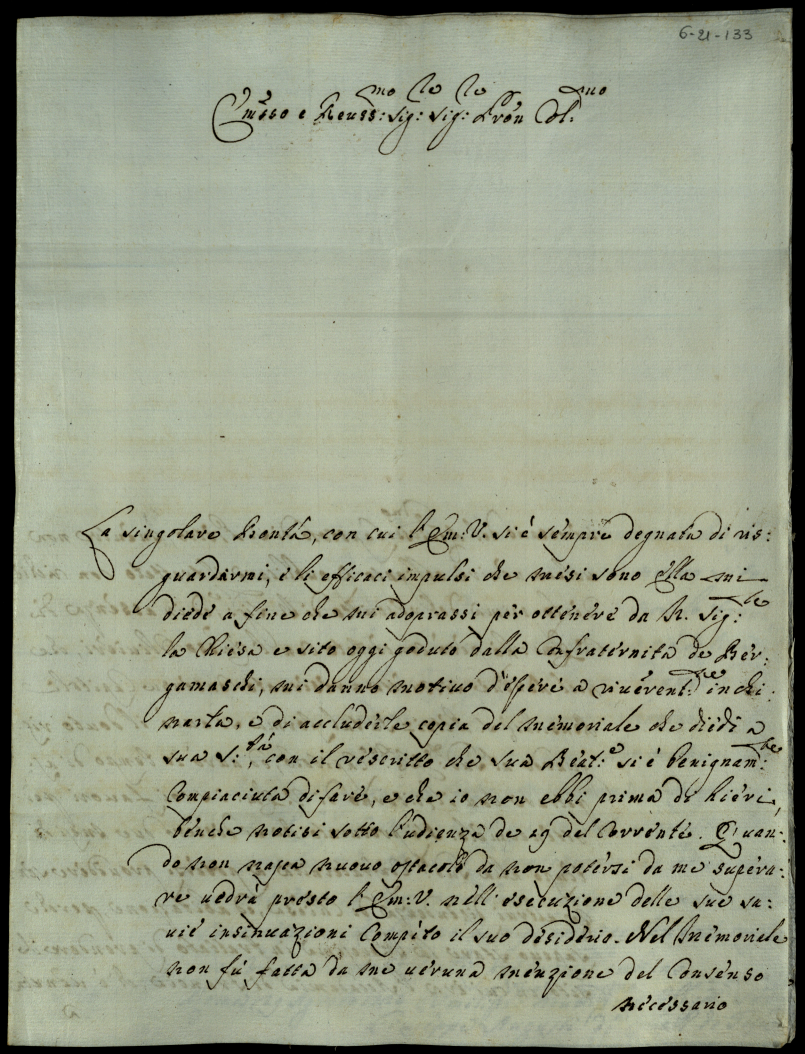 6-21-133
Em̃o e Reuss:mo Sig:re Sig:re Prõn Col:mo
La singolare bontá, con cui l'Em: V. si é sempre degnata di ris:
guardarmi, e li efficaci impulsi che mesi sono ella mi
diede a fine che mi adoprassi per ottenere da N. Sig:re
la Chiesa e sito oggi goduto dalla Confraternita de Ber:
gamaschi, mi danno motivo d'essere a riuerent:te inchi:
narla, e di accluderle copia del memoriale che diedi a
sua S:tá, con il rescritto che sua Beat:e si é benignam:te
Compiaciuta di fare, e che io non ebbi prima di hieri,
benche notisi sotto l'udienza de 29 del Corrente. Quan:
do non nasca nuovo ostacolo da non potersi da me supera:
re uedrà presto l'Em: V. nell'esecuzione delle sue sa:
uie insinuazioni Compito il suo desiderio. Nel Memoriale
non fú fatta da me ueruna menzione del Consenso
necessario